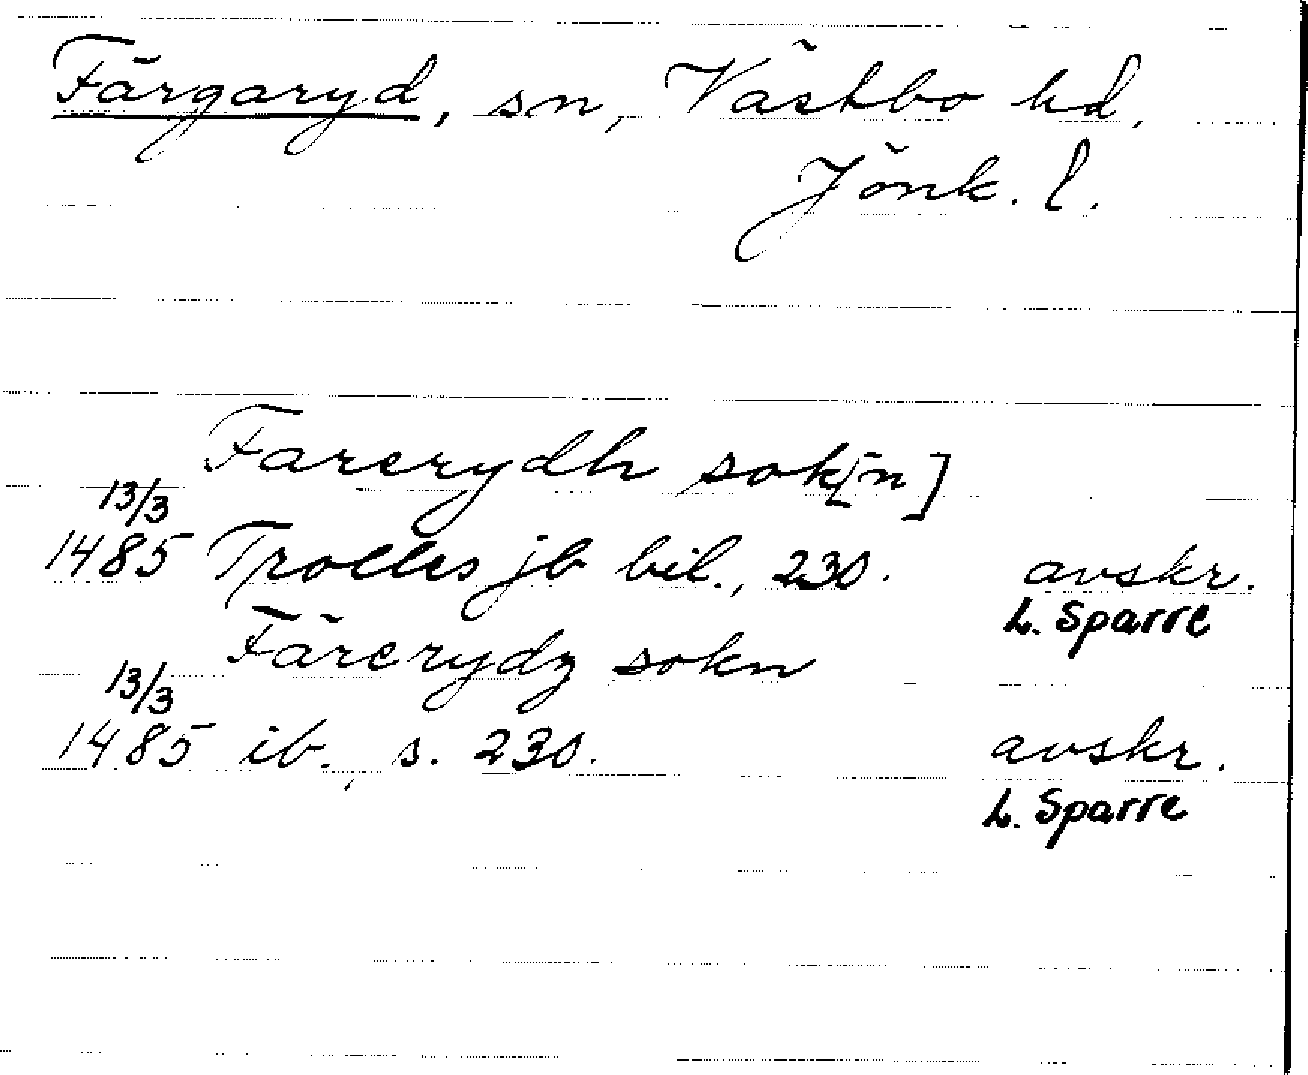 Färgaryd, sn, Västbo hd,
Jönk. l.
Farerydh sok[n]
13/3
1485 Trolles jb bil., 230. avskr.
L. Sparre
Färerydz sokn
13/3
1485 ib., s. 230. avskr.
L. Sparre